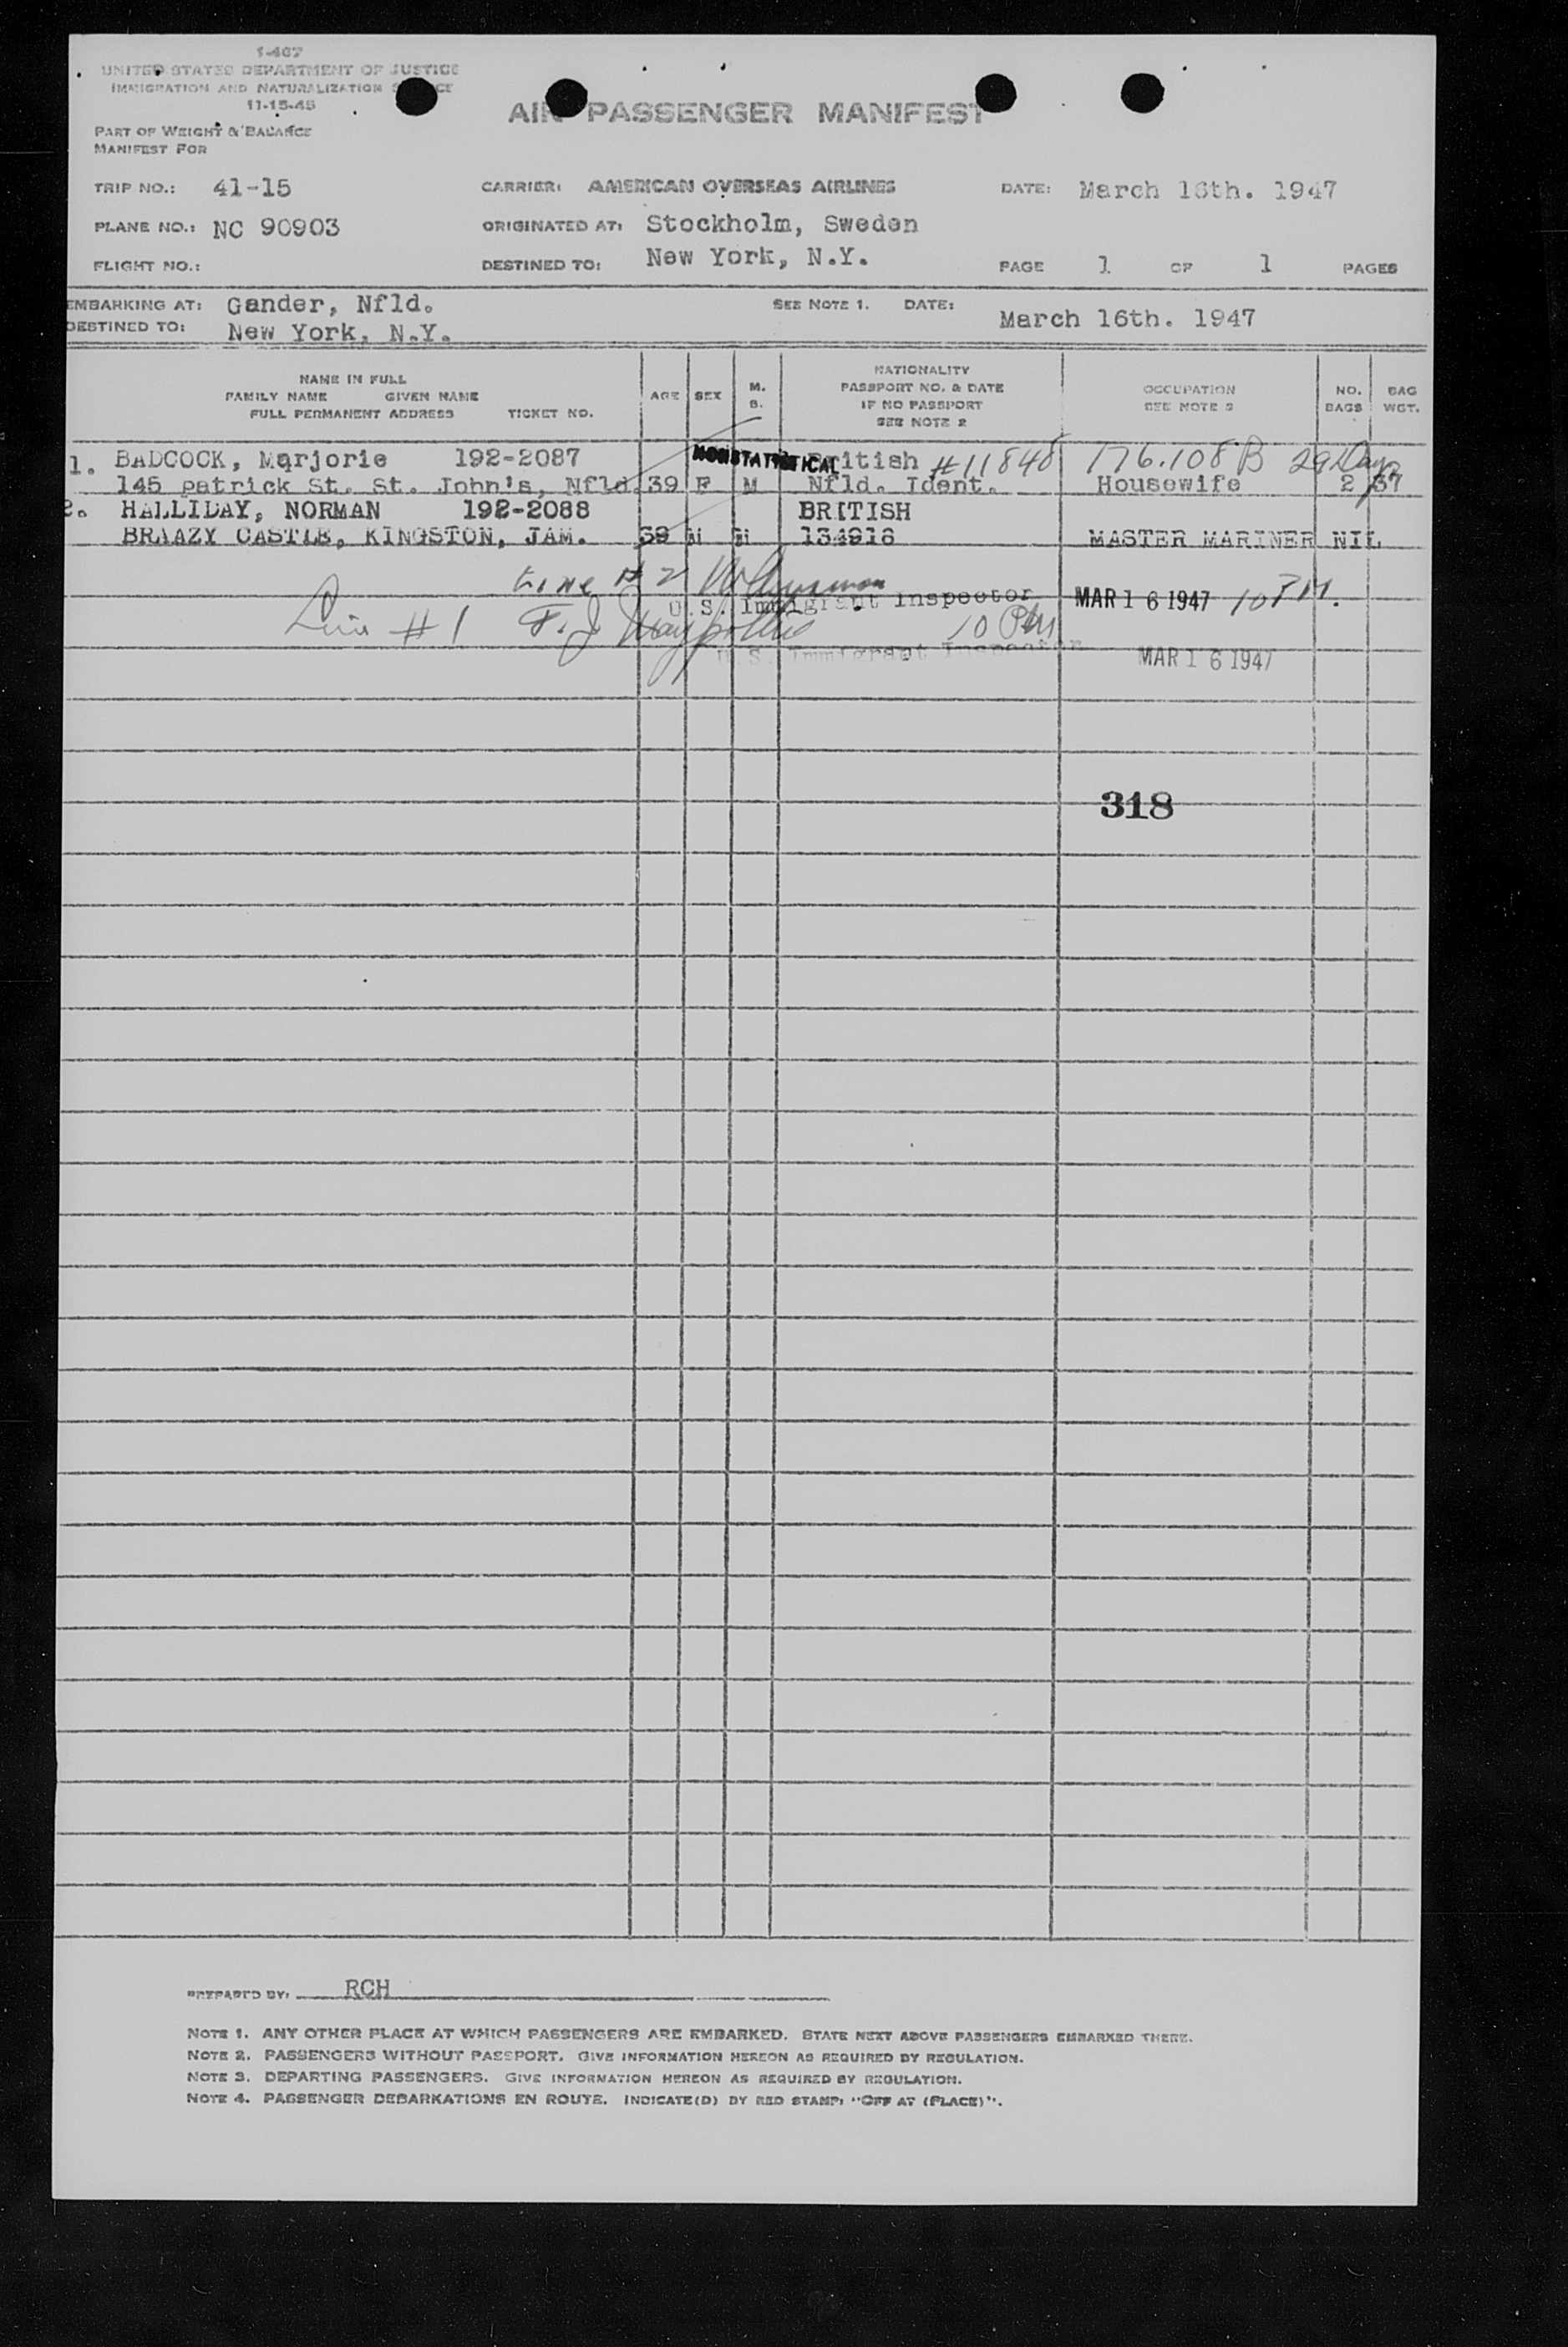 1-407
UNITED STATES DEPARTMENT OF JUSTICE
IMMIGRATION AND NATURALIZATION
11-15-45
AIR PASSENGER MANIFEST
PART OF WEIGHT & BALANCE
MANIFEST FOR
TRIP NO.: 41-15 CARRIER: AMERICAN OVERSEAS AIRLINES DATE: March 16th. 1947
PLANE NO.: NC 90903 ORIGINATED AT: Stockholm, Sweden
FLIGHT NO.: DESTINED TO: New York, N.Y. PAGE 1 OF 1 PAGES
EMBARKING AT: Gander, Nfld. SEE NOTE 1. DATE: March 16th. 1947
DESTINED TO: New York, N.Y.
NAME IN FULL
FAMILY NAME GIVEN NAME
FULL PERMANENT ADDRESS TICKET NO.
AGE
SEX
M.
S.
NATIONALITY
PASSPORT NO. & DATE
IF NO PASSPORT
SEE NOTE 2
OCCUPATION
SEE NOTE 3
NO.
BAGS
BAG
WGT.
1. BADCOCK, Marjorie 192-2087 NONSTATISTICAL British #11848 176.108 B 29 Days
145 patrick St. St. John's, Nfld. 39 F M Nfld. Ident. Housewife 2 37
2. HALLIDAY, NORMAN 192-2088 BRITISH
BRAAZY CASTLE, KINGSTON, JAM. 39 M M 134916 MASTER MARINER NIL
Line # 2
U.S. Immigrant Inspector MAR 16 1947 10 PM.
Line # 1 F. J. 10 PM
U.S. Immigrant Inspector MAR 16 1947
318
PREPARED BY: RCH
NOTE 1. ANY OTHER PLACE AT WHICH PASSENGERS ARE EMBARKED. STATE NEXT ABOVE PASSENGERS EMBARKED THERE.
NOTE 2. PASSENGERS WITHOUT PASSPORT. GIVE INFORMATION HEREON AS REQUIRED BY REGULATION.
NOTE 3. DEPARTING PASSENGERS. GIVE INFORMATION HEREON AS REQUIRED BY REGULATION.
NOTE 4. PASSENGER DEBARKATIONS EN ROUTE. INDICATE(D) BY RED STAMP: "OFF AT (PLACE)".